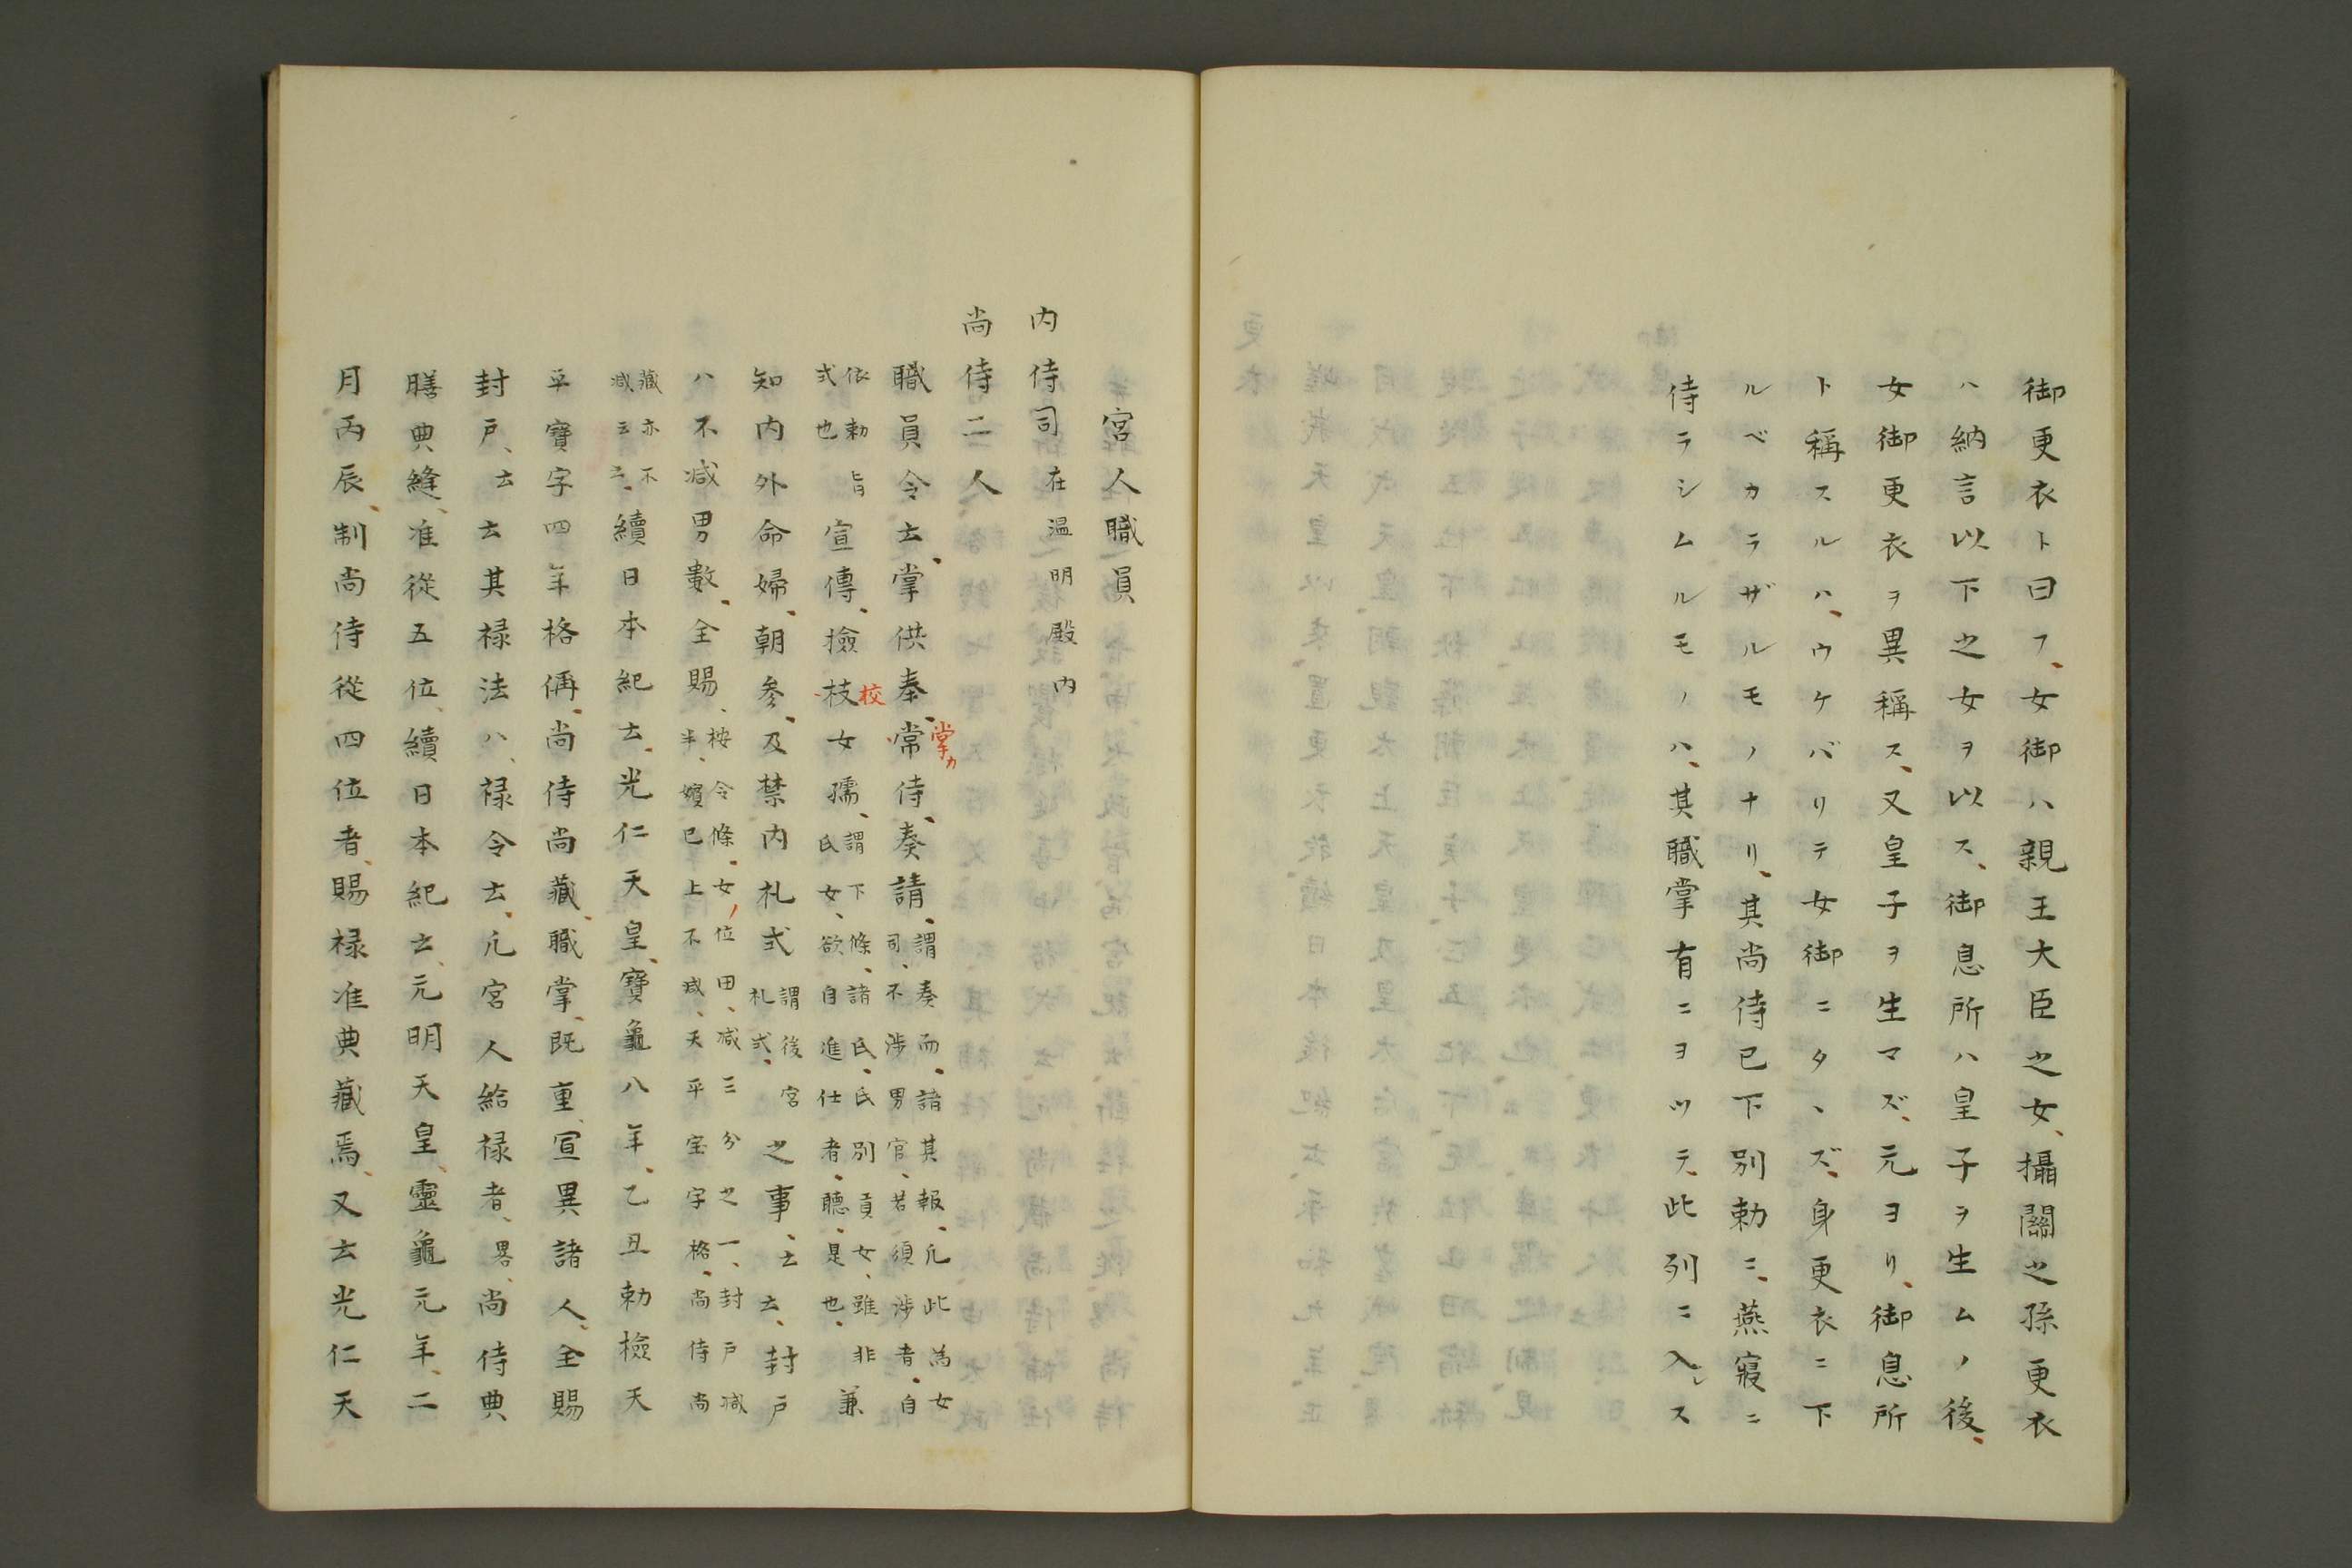 御更衣ト曰フ、女御ハ親王大臣之女、攝關之孫更衣
ハ納言以下之女ヲ以ス、御息所ハ皇子ヲ生ムノ後、
女御更衣ヲ異稱ス、又皇子ヲ生マズ、元ヨリ、御息所
ト稱スルハ、ウケバリテ女御ニタヽズ、身更衣ニ下
ルベカラザルモノナリ、其尚侍已下別勅ニ、燕寢ニ
侍ラシムルモノハ、其職掌有ニヨツテ、此列ニ入レス
宮人職員
内侍司在温明殿内
尚侍二人
職員令云、掌供奉、常侍、奏請、謂奏而、請其報、凡此為女司、不渉男官、若須渉者、自
掌カ
依勅旨式也宣傳、撿枝女孺、謂下條、諸氏、氏別貢女、雖非氏女、欲自進仕者、聽、是也、兼
校
知内外命婦、朝參、及禁内札式謂後宮札式、之事、云云、封戸
ハ不减男數、全賜、按令條、女位田、减三分之一、封戸减半、嬪已上不减、天平宝字格、尚侍尚
藏亦不减云云、續日本紀云、光仁天皇、寶龜八年、乙丑勅撿天
平寶字四年格偁、尚侍尚藏、職掌、既重、宣異諸人、全賜
封戸、云云其禄法ハ、禄令云、凡宮人給禄者、畧、尚侍典
膳典縫、准從五位、續日本紀云、元明天皇、靈龜元年、二
月丙辰、制尚侍從四位者、賜禄准典藏焉、又云光仁天